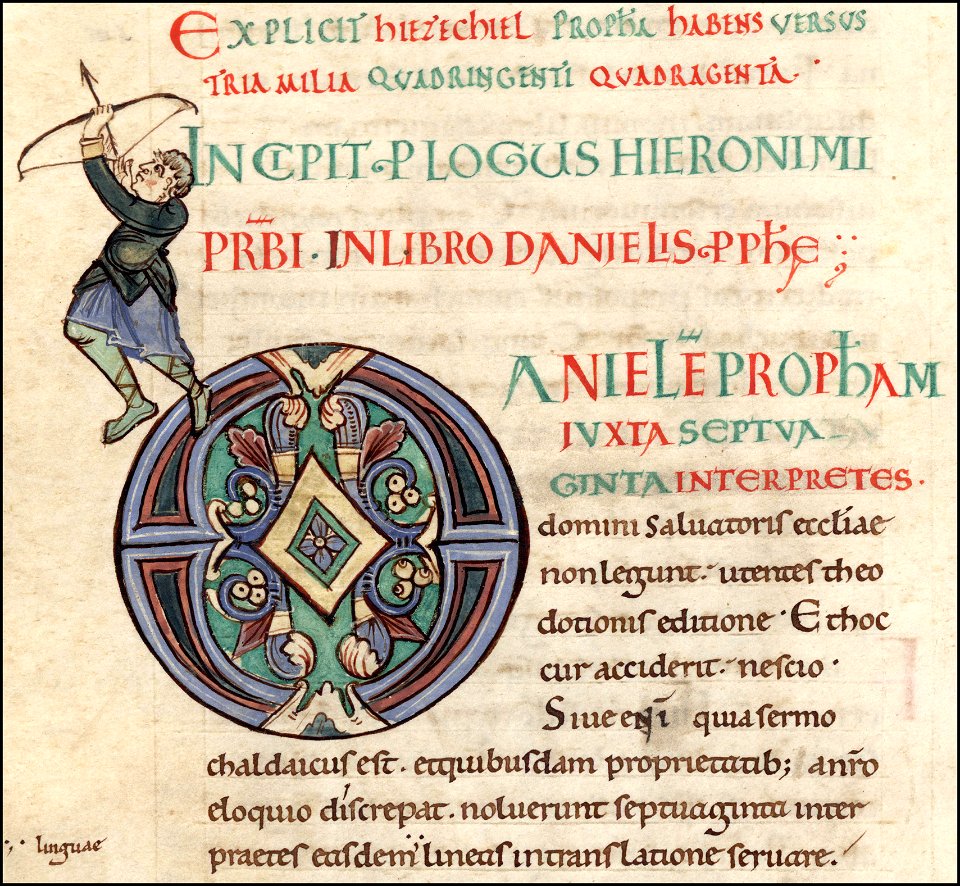 EXPLICIT HIEZECHIEL PROPHA HABENS VERSUS
TRIA MILIA QUADRINGENTI QUADRAGENTA.
INCIPIT PLOGUS HIERONIMI
PRBI · IN LIBRO DANIELIS PPHE
DANIELE PROPHAM
JUXTA SEPTUA
GINTA INTERPRETES.
domini saluatoris eccliae
non legunt. utentes theo
dotionis editione · Et hoc
cur acciderit. nescio ·
Siue eni quia sermo
chaldaicus est. et quibusdam proprietatib; anro
eloquio discrepat. noluerunt septuaginta inter
praetes easdem lineas in translatione seruare.
·,· linguae